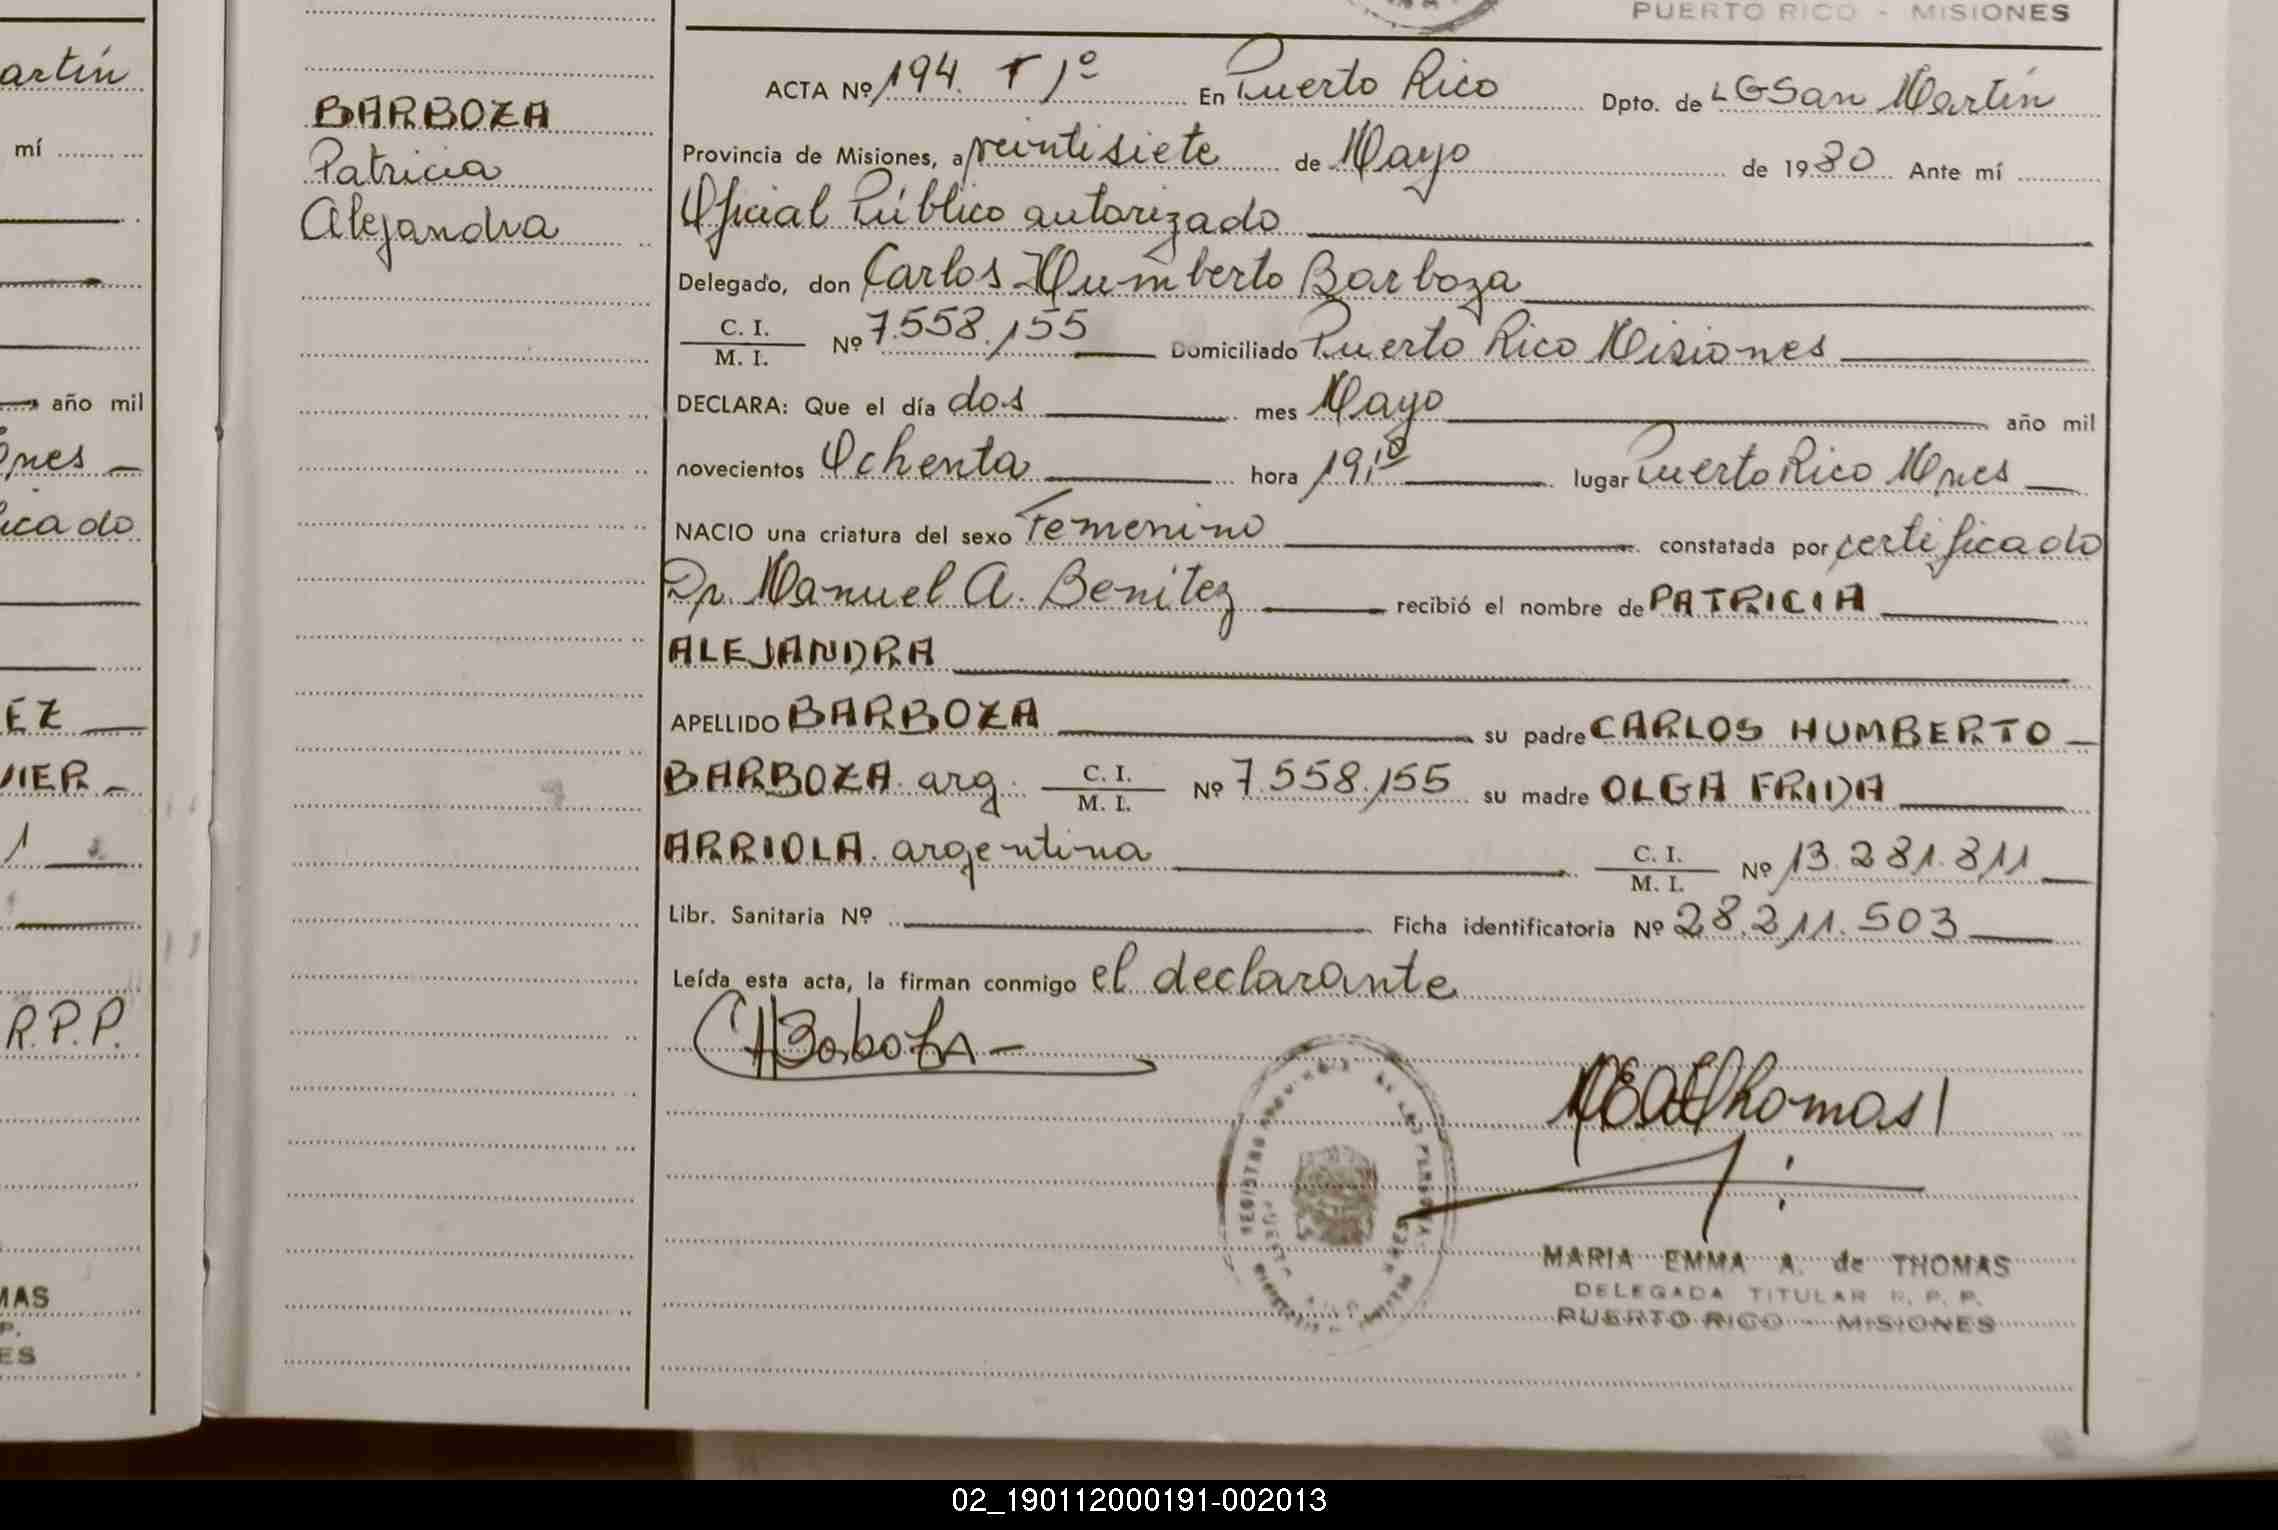 PUERTO RICO - MISIONES
artín
mí
año mil
ones
icado
EZ
VIER
1
R.P.P.
MAS
P.
ES
BARBOZA
Patricia
Alejandra
ACTA Nº 194. T 1º En Puerto Rico Dpto. de LGSan Martín
Provincia de Misiones, a veintisiete de Mayo de 1980 Ante mí
Oficial Público autorizado
Delegado, don Carlos Humberto Barboza
C. I.
M. I. Nº 7.558.155 Domiciliado Puerto Rico Misiones
DECLARA: Que el día dos mes Mayo año mil
novecientos Ochenta hora 19,10 lugar Puerto Rico Mnes
NACIO una criatura del sexo Femenino constatada por certificado
Dr. Manuel A. Benitez recibió el nombre de PATRICIA
ALEJANDRA
APELLIDO BARBOZA su padre CARLOS HUMBERTO
BARBOZA arg. C. I. M. I. Nº 7.558.155 su madre OLGA FRIDA
ARRIOLA argentina C. I. M. I. Nº 13.281.811
Libr. Sanitaria Nº Ficha identificatoria Nº 28.211.503
Leída esta acta, la firman conmigo el declarante
CHBarboza
MEAThomas
MARIA EMMA A. de THOMAS
DELEGADA TITULAR R. P. P.
PUERTO RICO - MISIONES
02_190112000191-002013